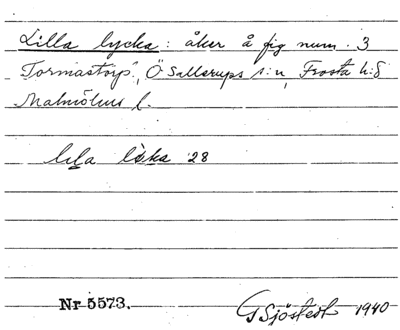 Lilla lycka: åker å fig num. 3
Tormastorp, Ö Sallerups s:n, Frosta h:d
Malmöhus l.
lila lòka 28
Nr 5573.
G Sjöstedt 1940